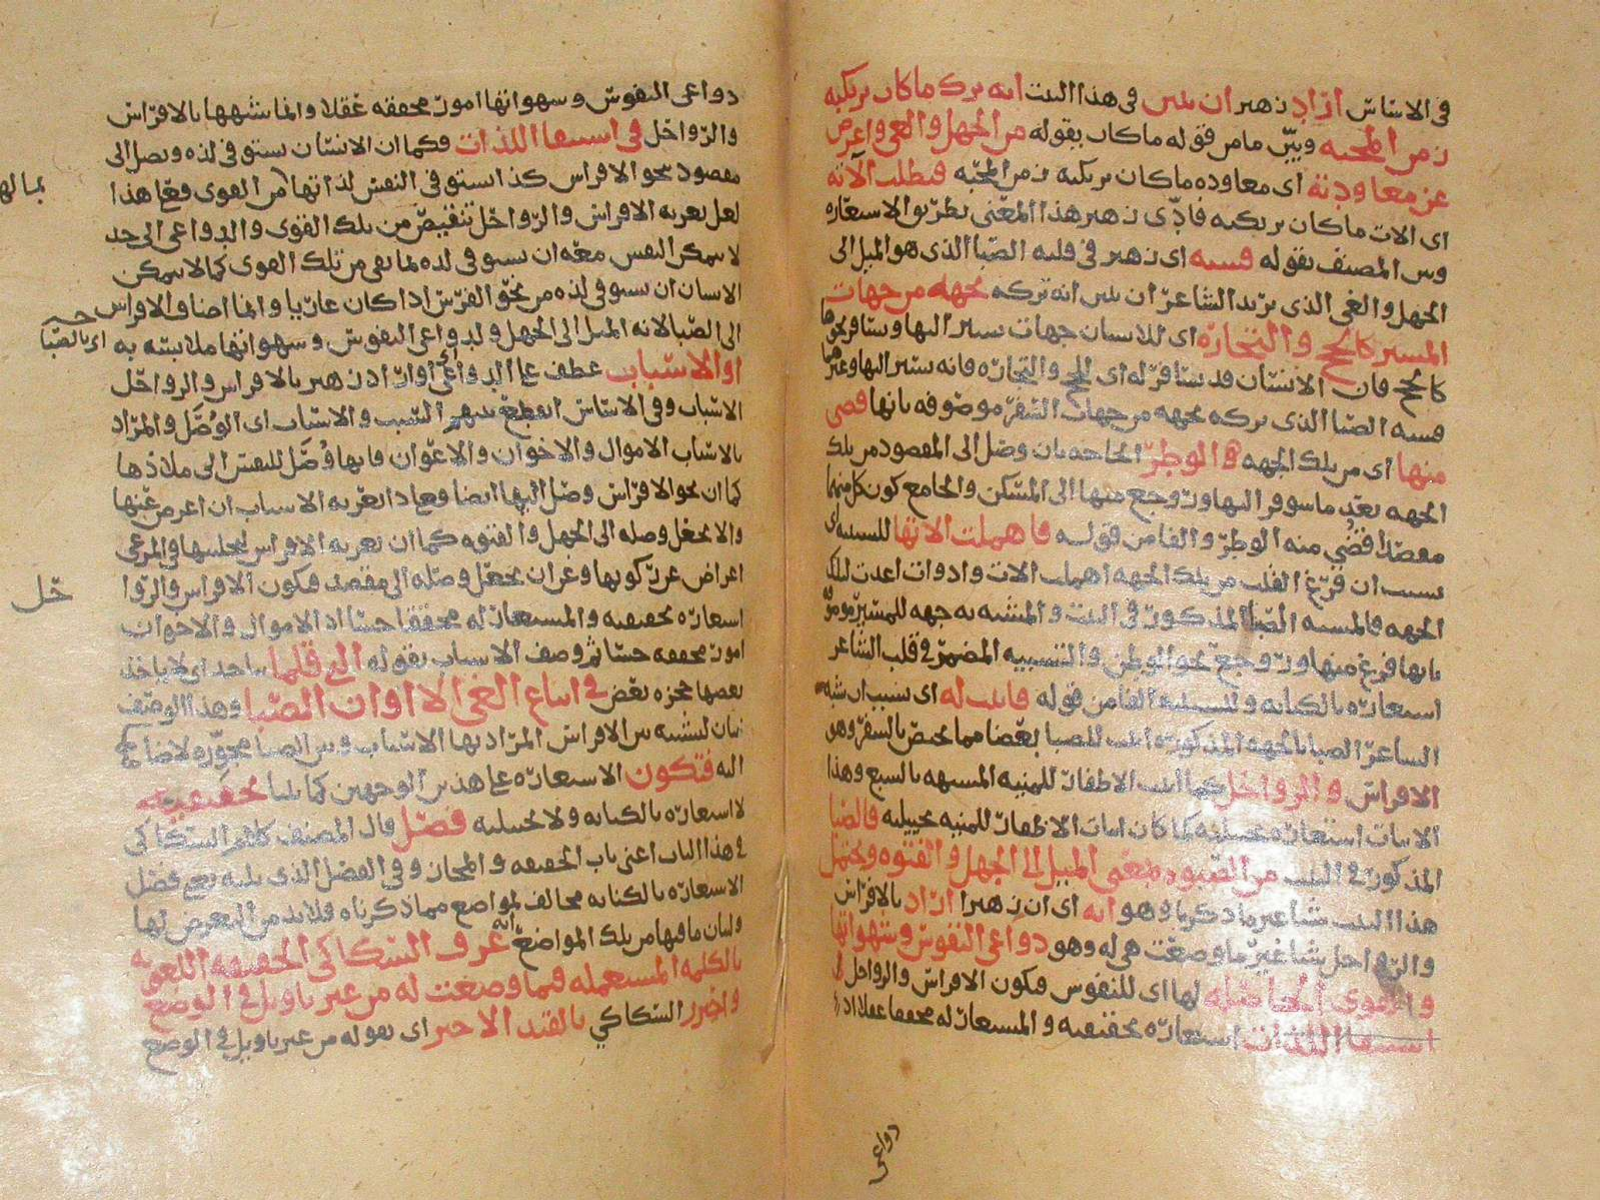 في الاساس اراد زهير ان يبين في هذا البيت انه ترك ما كان يرتكبه
زمن المحبة وبين ما من قوله ما كان بقوله من الجهل والغي واعرض
عن معاودته اى معاوده ما كان يرتكبه زمن المحبه فبطلت الاته
اى الات ما كان يرتكبه فادى زهير هذا المعنى بطريق الاستعاره
وبين المصنف بقوله فشبه اى زهير في قلبه الصبا الذى هو الميل الى
الجهل والغي الذى يريد الشاعر ان يبين انه تركه بجهه من جهات
المسير كالحج والتجارة اى للانسان جهات يسير اليها ويسافر نحوها
كالحج فان الانسان قد يسافر له اى للحج والتجاره فانه يسير اليها وغيرهما
فشبه الصبا الذى تركه بجهه من جهات السفر موصوفه بانها قضى
منها اى من تلك الجهه الوطر الحاجه بان وصل الى المقصود من تلك
الجهه بعد ما سافر اليها ورجع منها الى المسكن والجامع كون كل منهما
مقصدا قضي منه الوطر والفا من قوله فاهملت الاتها للسببيه اى
بسبب ان فرغ القلب من تلك الجهه اهملت الات وادوات اعدت لتلك
الجهه فالمشبه الصبا المذكور في البيت والمشبه به جهه للمسير موصوفه
بانها فرغ منها ورجع نحو الوطن والتشبيه المضمر في قلب الشاعر
استعاره بالكنايه وللسببيه الفا من قوله فاثبت له اى بسبب ان شبه
الشاعر الصبا بالجهه المذكوره اثبت للصبا بعض ما يختص بالسفر وهو
الافراس والرواحل كما اثبت الاظفار للمنيه المشبهه بالسبع وهذا
الاثبات استعاره تخييليه كما كان اثبات الاظفار للمنيه تخييليه فالصبا
المذكور في البيت من الصبوه بمعنى الميل الى الجهل والفتوه ويحتمل
هذا البيت شيئا غير ما ذكرنا وهو انه اى ان زهيرا اراد بالافراس
والرواحل شيئا غير ما وضعت هي له وهو دواعى النفوس وشهواتها
والقوى الحاصله لها اى للنفوس فكون الافراس والرواحل
استيفا اللذات استعاره تحقيقيه والمستعار له محققا عقلا اذ
دواعى
دواعى النفوس وشهواتها امور محققه عقلا وانما شبهها بالافراس
والرواحل في استيفا اللذات فكما ان الانسان يستوفى لذه ويصل الى
مقصود نحو الافراس كذا يستوفى النفس لذاتها من القوى فعلى هذا
بما لها
لعل تعريه الافراس والرواحل تنقيص من تلك القوى والدواعى الى حد
لا يمكن النفس معه ان يستوفى لذه بما بقى من تلك القوى كما لا يمكن
الانسان ان يستوفى لذه من نحو الفرس اذا كان عاريا وانما اضاف الافراس
الى الصبا لانه الميل الى الجهل ولدواعى النفوس وشهواتها ملابسه به
اى بالصبا
او الاسباب عطف على الدواعى اى او اراد زهير بالافراس والرواحل
الاسباب وفي الاساس انقطع بينهم السبب والاسباب اى الوصل والمراد
بالاسباب الاموال والاخوان والاعوان فانها وصل للنفس الى ملاذها
كما ان نحو الافراس وصل اليها ايضا ومعاد تعريه الاسباب ان اعرض عنها
والا يجعل وصله الى الجهل والفتوه كما ان تعريه الافراس
اعراض عن ركوبها وعن ان يجعل وصله الى مقصد فكون الافراس والروا
حل
استعاره تحقيقيه والمستعار له محققا حسا اذ الاموال والاخوان
امور محققه حسا ثم وصف الاسباب بقوله التي قلما ياخذ اى لا ياخذ
بعضها بعض في اتباع الغي الا اوان الصبا وهذا الوصف
بيان لتشبيه بين الافراس المراد بها الاسباب وبين الصبا
اليه فتكون الاستعاره على هذين الوجهين كما بينا تحقيقيه
لا استعاره بالكنايه ولا تخييليه فصل قال المصنف كلام السكاكى
في هذا الباب اعنى باب الحقيقه والمجاز وفي الفصل الذى يليه يعنى فصل
الاستعاره بالكنايه مخالف لمواضع مما ذكرناه فلا بد من التعرض لها
ولبيان ما فيها من تلك المواضع انه عرف السكاكى الحقيقه اللغويه
بالكلمه المستعمله فيما وضعت له من غير تاويل في الوضع
واحترز السكاكي بالقيد الاخير اى بقوله من غير تاويل في الوضع